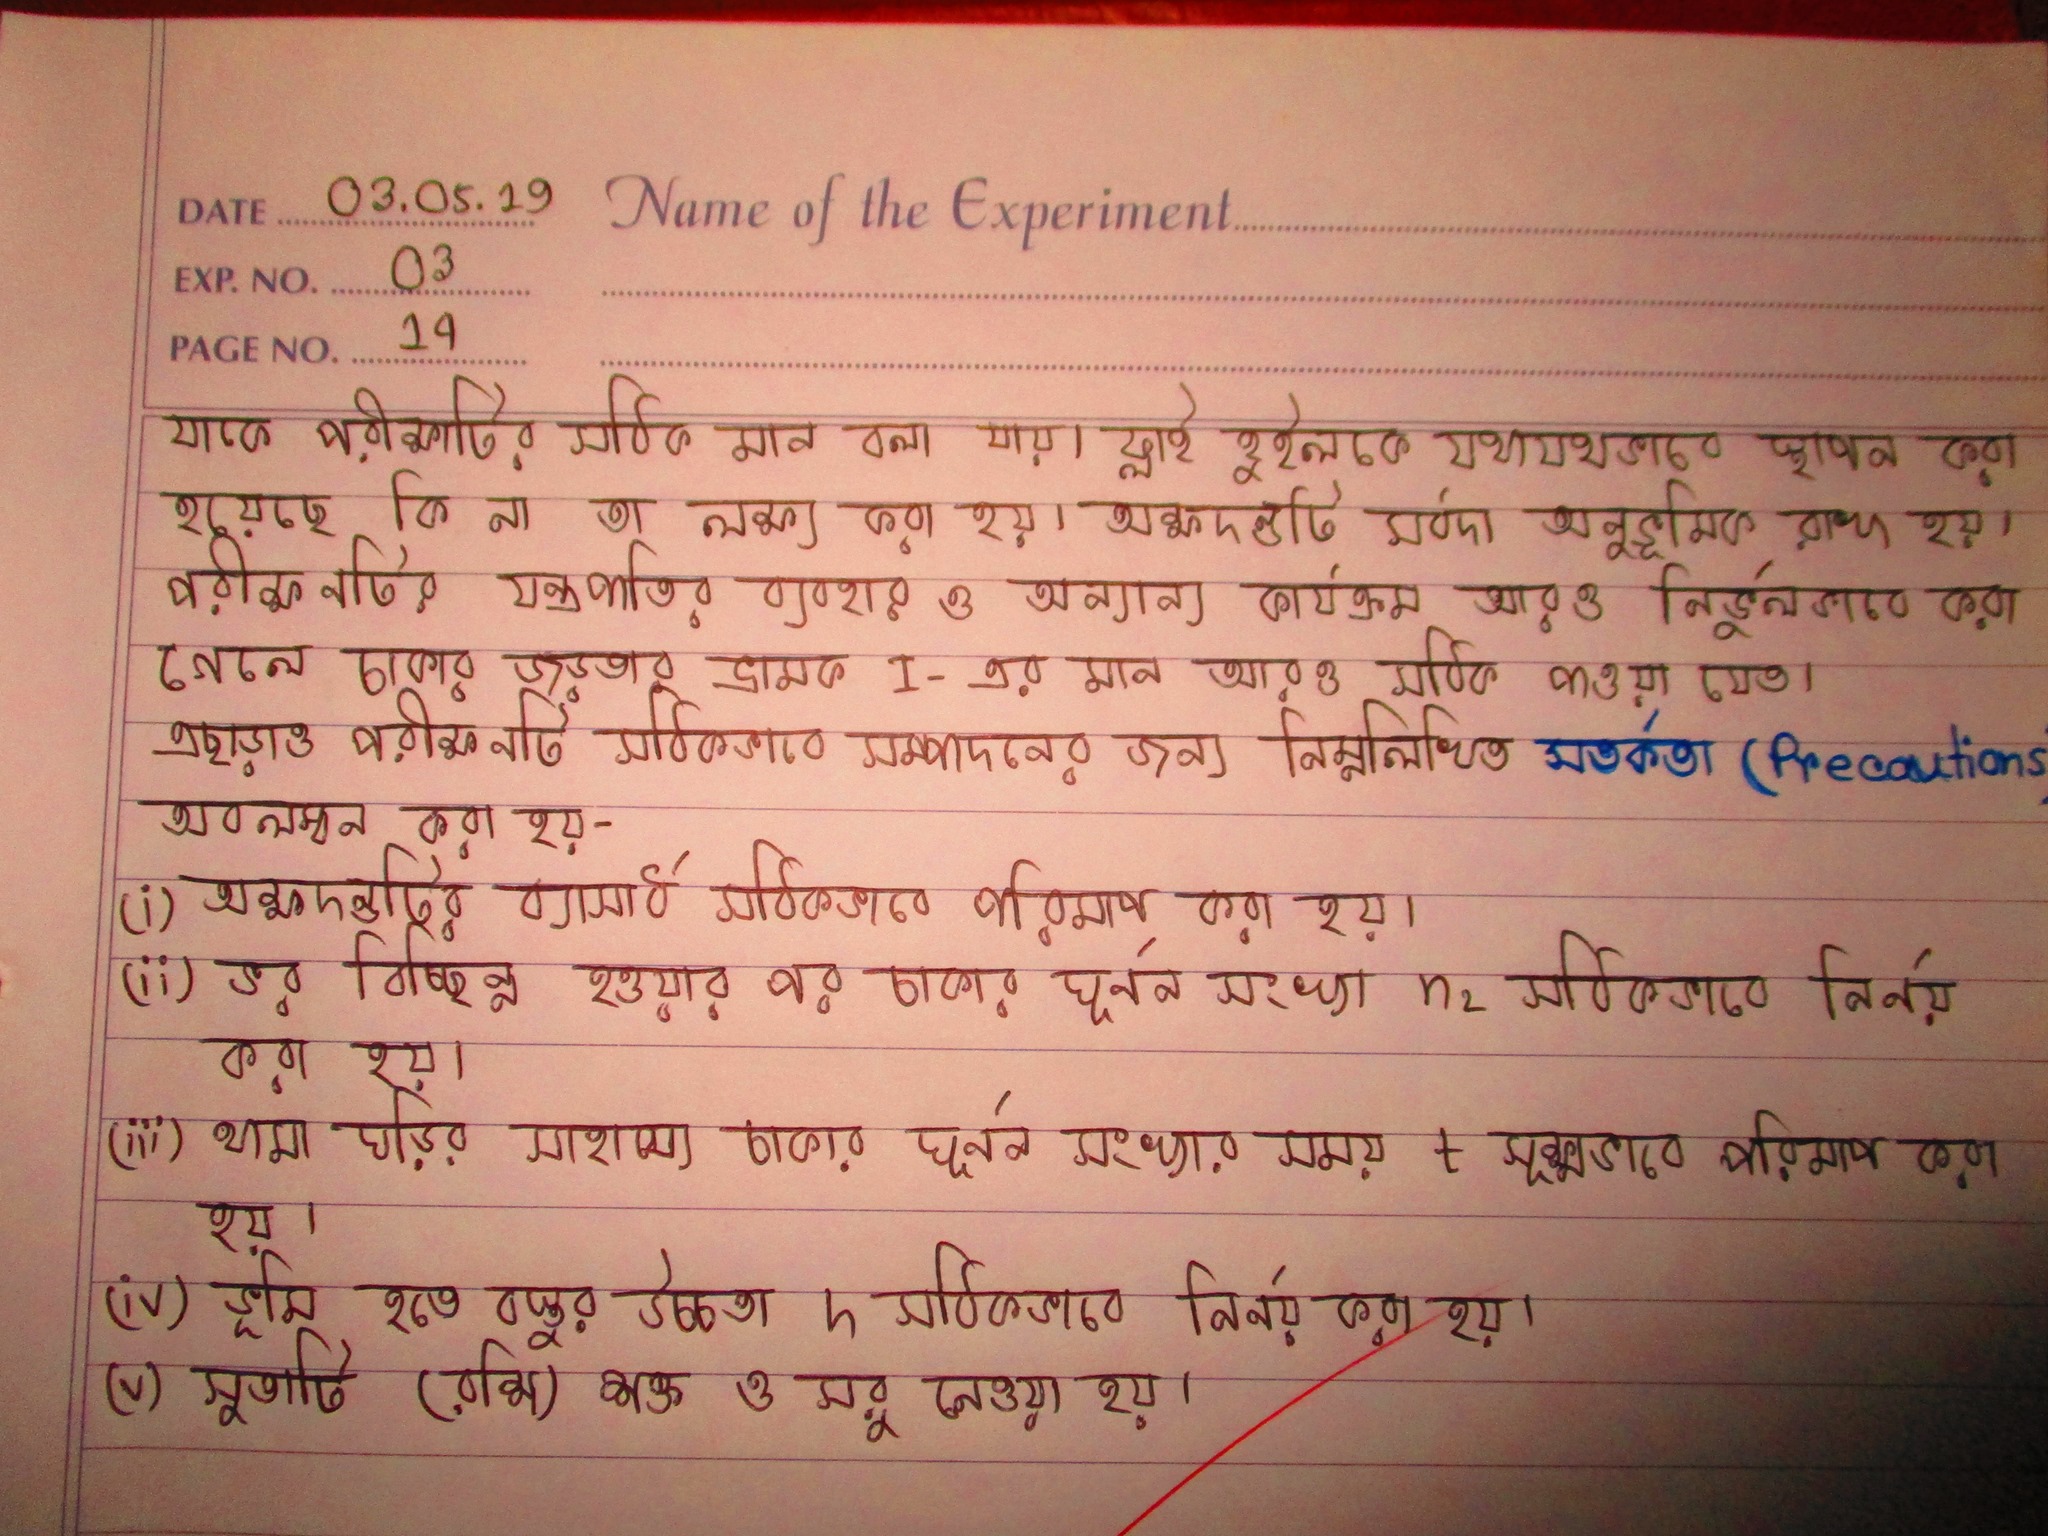 DATE 03.05.19 Name of the Experiment
EXP. NO. 03
PAGE NO. 19
যাকে পরীক্ষাটির সঠিক মান বলা যায়। ফ্লাই হুইলকে যথাযথভাবে স্থাপন করা
হয়েছে কি না তা লক্ষ্য করা হয়। অক্ষদন্ডটি সর্বদা অনুভূমিক রাখা হয়।
পরীক্ষনটির যন্ত্রপাতির ব্যবহার ও অন্যান্য কার্যক্রম আরও নির্ভুলভাবে করা
গেলে চাকার জড়তার ভ্রামক I- এর মান আরও সঠিক পাওয়া যেত।
এছাড়াও পরীক্ষনটি সঠিকভাবে সম্পাদনের জন্য নিম্নলিখিত সতর্কতা (Precautions)
অবলম্বন করা হয়-
(i) অক্ষদন্ডটির ব্যাসার্ধ সঠিকভাবে পরিমাপ করা হয়।
(ii) ভর বিচ্ছিন্ন হওয়ার পর চাকার ঘূর্নন সংখ্যা n₂ সঠিকভাবে নির্নয়
করা হয়।
(iii) থামা ঘড়ির সাহায্যে চাকার ঘূর্নন সংখ্যার সময় t সূক্ষ্মভাবে পরিমাপ করা
হয়।
(iv) ভূমি হতে বস্তুর উচ্চতা h সঠিকভাবে নির্নয় করা হয়।
(v) সুতাটি (রশ্মি) শক্ত ও সরু নেওয়া হয়।